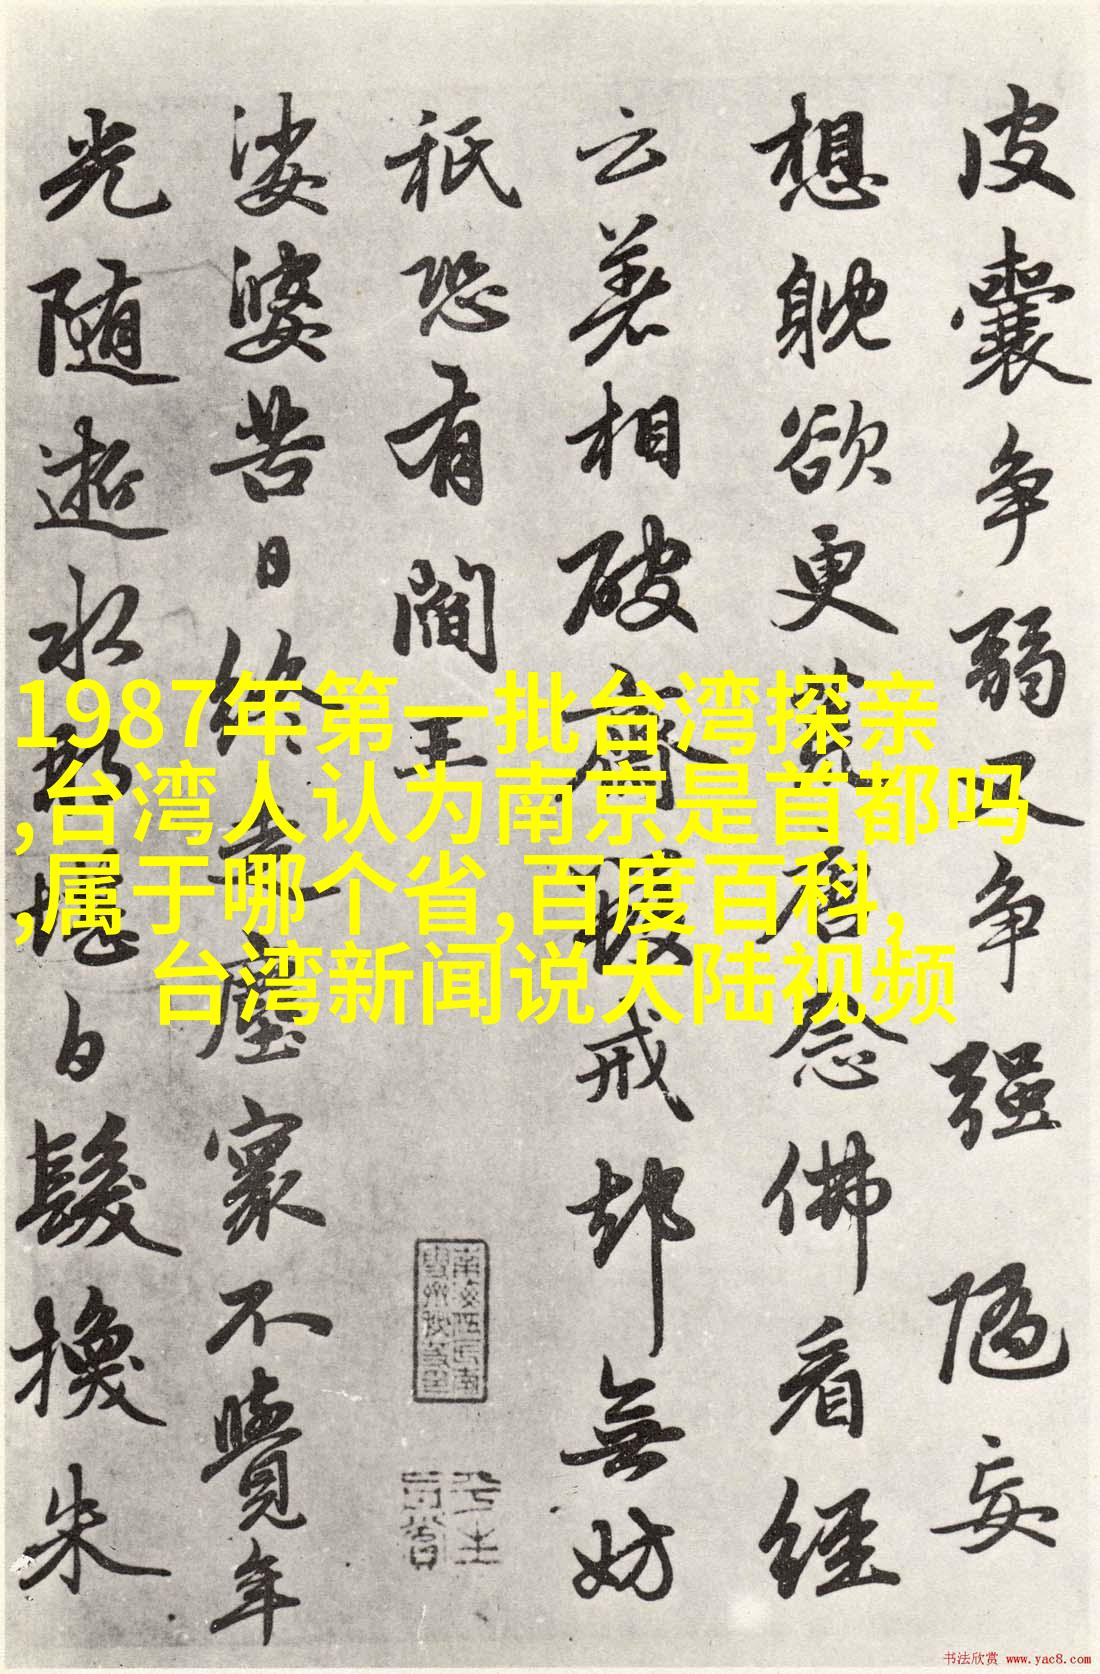 皮囊争弱又争强随妄
想躭欲更莫厝念佛看经
云著相破齋毁戒却無妨
祇恐有閻王
娑婆苦日終
塵寰不覺年
光随逝水
白髮換朱
1987年第一批台湾探亲
,台湾人认为南京是首都吗
,属于哪个省,百度百科,
台湾新闻说大陆视频
书法欣赏 www.yac8.com